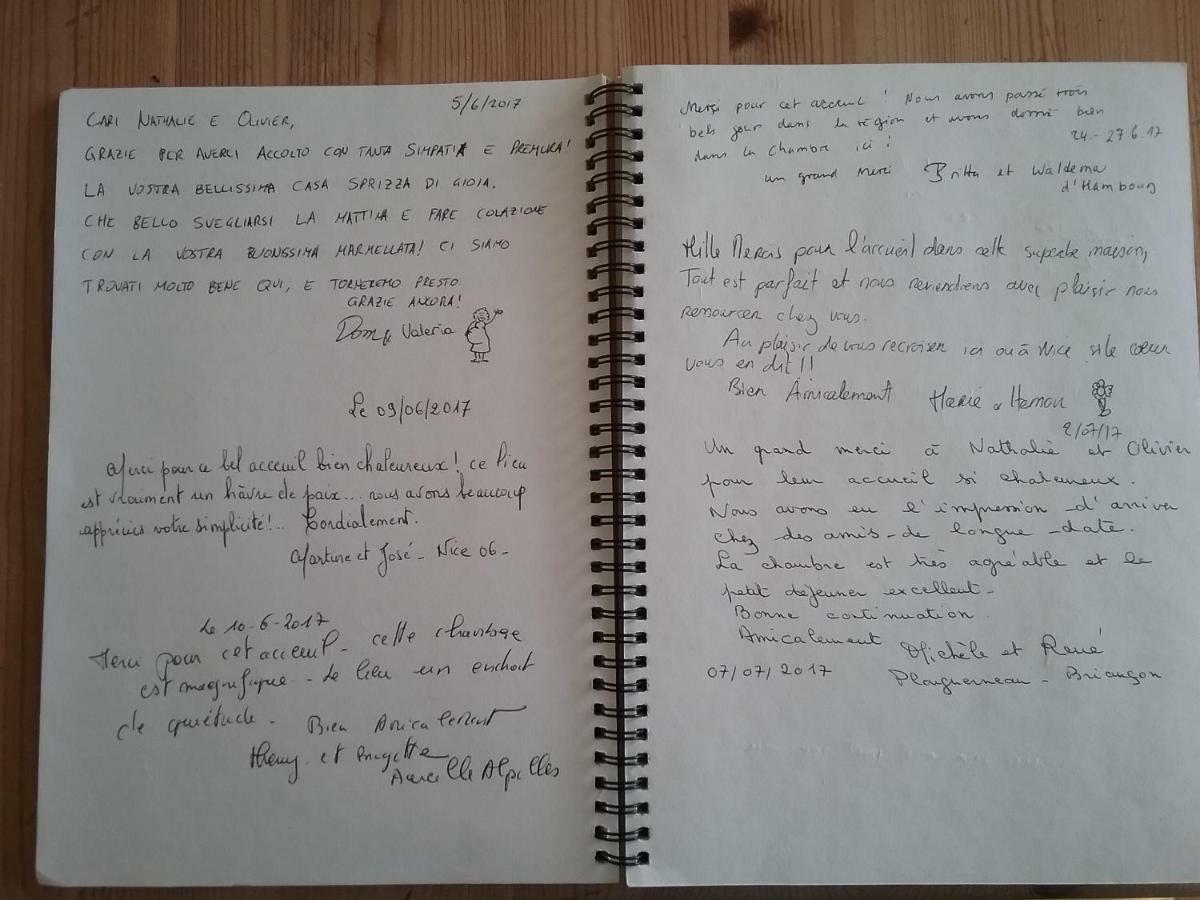 5/6/2017
CARI NATHALIE E OLIVIER,
GRAZIE PER AVERCI ACCOLTO CON TANTA SIMPATIA E PREMURA!
LA VOSTRA BELLISSIMA CASA SPRIZZA DI GIOIA.
CHE BELLO SVEGLIARSI LA MATTINA E FARE COLAZIONE
CON LA VOSTRA BUONISSIMA MARMELLATA! CI SIAMO
TROVATI MOLTO BENE QUI, E TORNEREMO PRESTO
GRAZIE ANCORA!
Valeria
Le 09/06/2017
Merci pour ce bel acceuil bien chaleureux! ce lieu
est vraiment un hâvre de paix.... nous avons beaucoup
appréciés votre simplicité!.. Cordialement.
Martine et José - Nice 06 -
Le 10-6-2017
Merci pour cet acceuil - cette
est magnifique - Le lieu un
de quiétude - Bien Amicalement
et
Alpilles
Merçi pour cet acceuil ! Nous avons passé trois
bels jour dans la région et avons dormi bien
24.-27.6.17
dans la chambre ici !
un grand Merci Britta et Waldema
d'Hambourg
Mille Mercis pour l'accueil dans cette superbe maison,
Tout est parfait et nous reviendrons avec plaisir nous
ressourcer chez vous.
Au plaisir de vous recroiser ici ou à Nice si le coeur
vous en dit !!
Bien Amicalement
2/07/17
Un grand merci à Nathalie et Olivier
pour leur accueil si chaleureux.
Nous avons eu l'impression d'arriver
chez des amis de longue date.
La chambre est très agréable et le
petit déjeuner excellent -
Bonne continuation
Amicalement Michèle et René
07/07/2017 Plouguerneau - Briançon